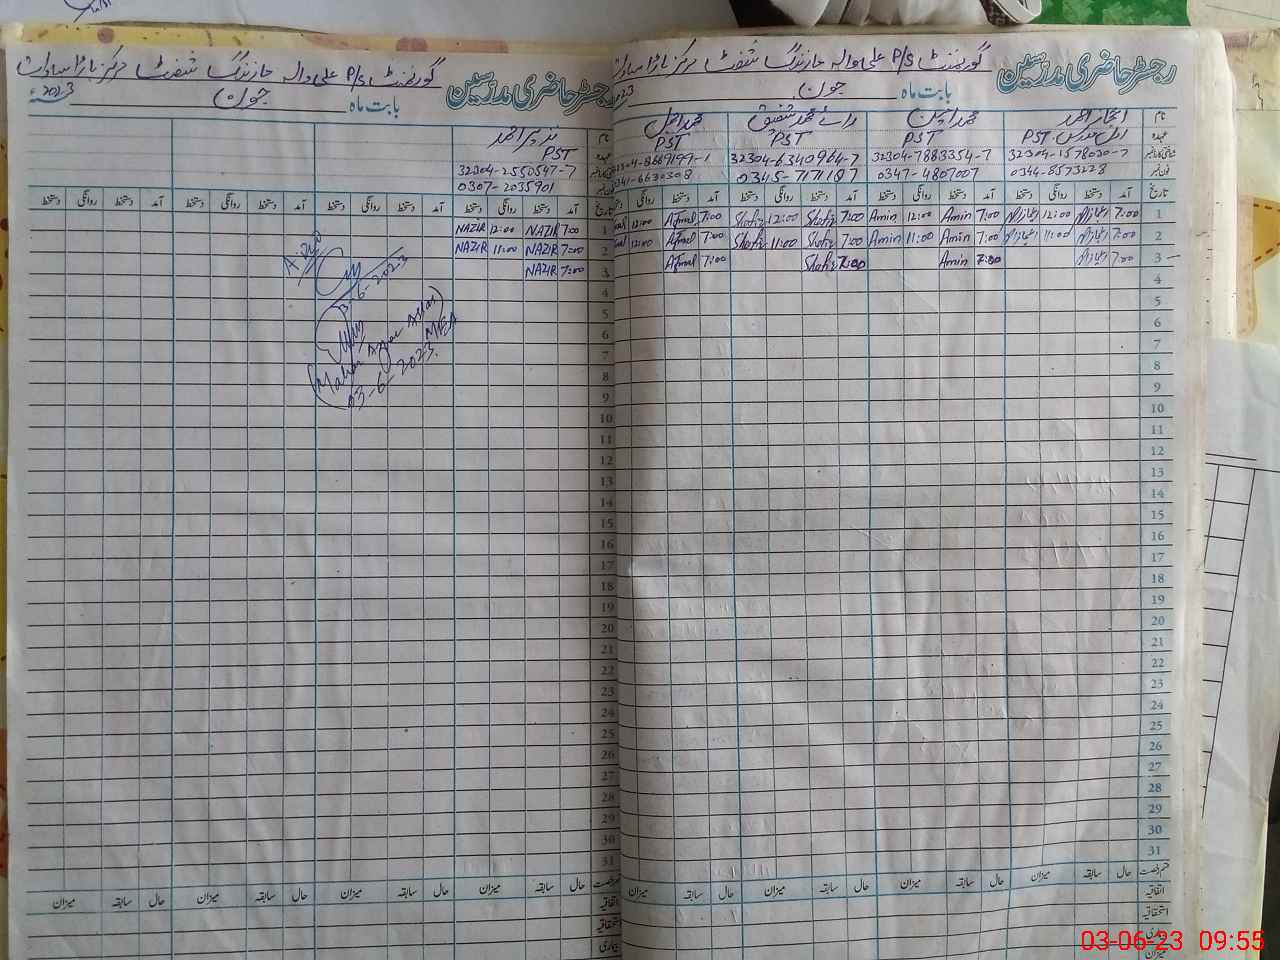 رجسٹر حاضری مدرسین
گورنمنٹ P/S علی والہ
شفٹ مرکز
بابت ماہ جون
نام
اعجاز احمد
محمد امین
محمد شفیق
محمد اجمل
عہدہ
PST
PST
PST
PST
32304-1578030-7
32304-7883354-7
32304-6340964-7
32304-8669199-1
0344-8573228
0347-4807007
0345-7171187
0341-6630308
تاریخ آمد دستخط روانگی دستخط آمد دستخط روانگی دستخط آمد دستخط روانگی دستخط آمد دستخط روانگی
1 7:00 12:00 7:00 Amin 12:00 Amin 7:00 Shafiq 12:00 Shafiq 7:00 Ajmal 12:00
2 7:00 11:00 7:00 Amin 11:00 Amin 7:00 Shafiq 11:00 Shafiq 7:00 Ajmal
3 7:00 7:00 Amin 7:00 Shafiq 7:00 Ajmal
4
5
6
7
8
9
10
11
12
13
14
15
16
17
18
19
20
21
22
23
24
25
26
27
28
29
30
31
حال سابقہ میزان حال سابقہ میزان حال سابقہ میزان حال سابقہ میزان
اتفاقیہ
استحقاقیہ
بیماری
میزان
رجسٹر حاضری مدرسین
گورنمنٹ P/S علی والہ
شفٹ مرکز
بابت ماہ جون 2023ء
نذیر احمد
PST
32304-2550547-7
0307-2035901
تاریخ آمد دستخط روانگی دستخط آمد دستخط روانگی دستخط آمد دستخط روانگی دستخط آمد دستخط روانگی دستخط
1 7:00 NAZIR 12:00 NAZIR
2 7:00 NAZIR 11:00 NAZIR
3 7:00 NAZIR
3-6-2023
MEA
03-6-2023
4
5
6
7
8
9
10
11
12
13
14
15
16
17
18
19
20
21
22
23
24
25
26
27
28
29
30
31
حال سابقہ میزان حال سابقہ میزان حال سابقہ میزان حال سابقہ میزان
اتفاقیہ
استحقاقیہ
بیماری
03-06-23 09:55